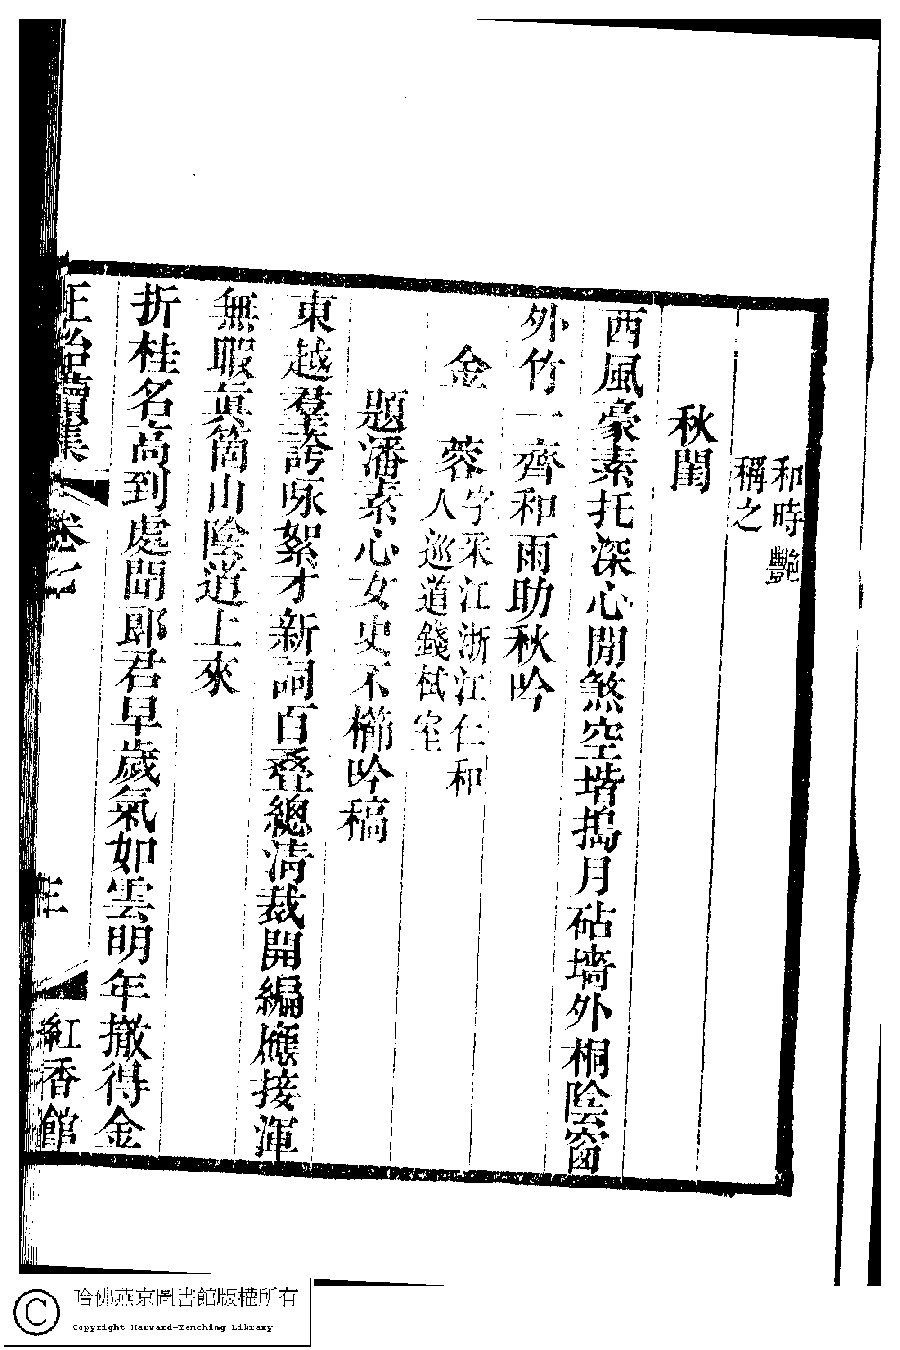 和時艷
稱之
秋閨
西風豪素托深心閒煞空堦搗月砧墻外桐陰窗
外竹一齊和雨助秋吟
金蓉字采江浙江仁和
人巡道錢栻室
題潘素心女史不櫛吟稿
東越羣誇咏絮才新詞百叠總淸裁開編應接渾
無暇眞箇山陰道上來
折桂名高到處聞郎君早歲氣如雲明年撤得金
正始續集
卷
紅香館
哈佛燕京圖書館版權所有
Copyright Harvard-Yenching Library